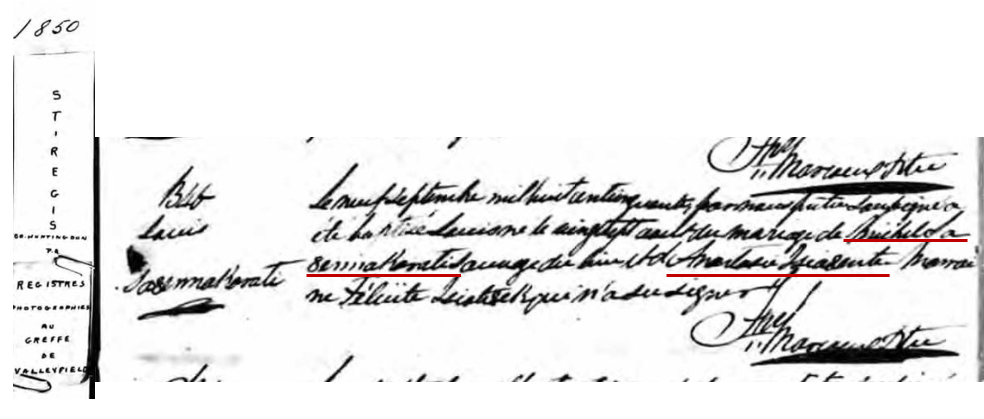 1850
ST. REGIS
CO. HUNTINGDON
P.Q.
REGISTRES
PHOTOGRAPHIES
AU
GREFFE
DE
VALLEYFIELD
Frs. Marcoux Ptre
B46
Louis
Sasennakorati
Le neuf Septembre mil huit cent cinquante, par nous prêtre soussigné a
été baptisé Louis né le vingt sept août du mariage de Michel Sa
sennakorati Sauvage du lieu et d'Anastasie Marrai
ne Félicité qui n'a su signer
Frs. Marcoux Ptre